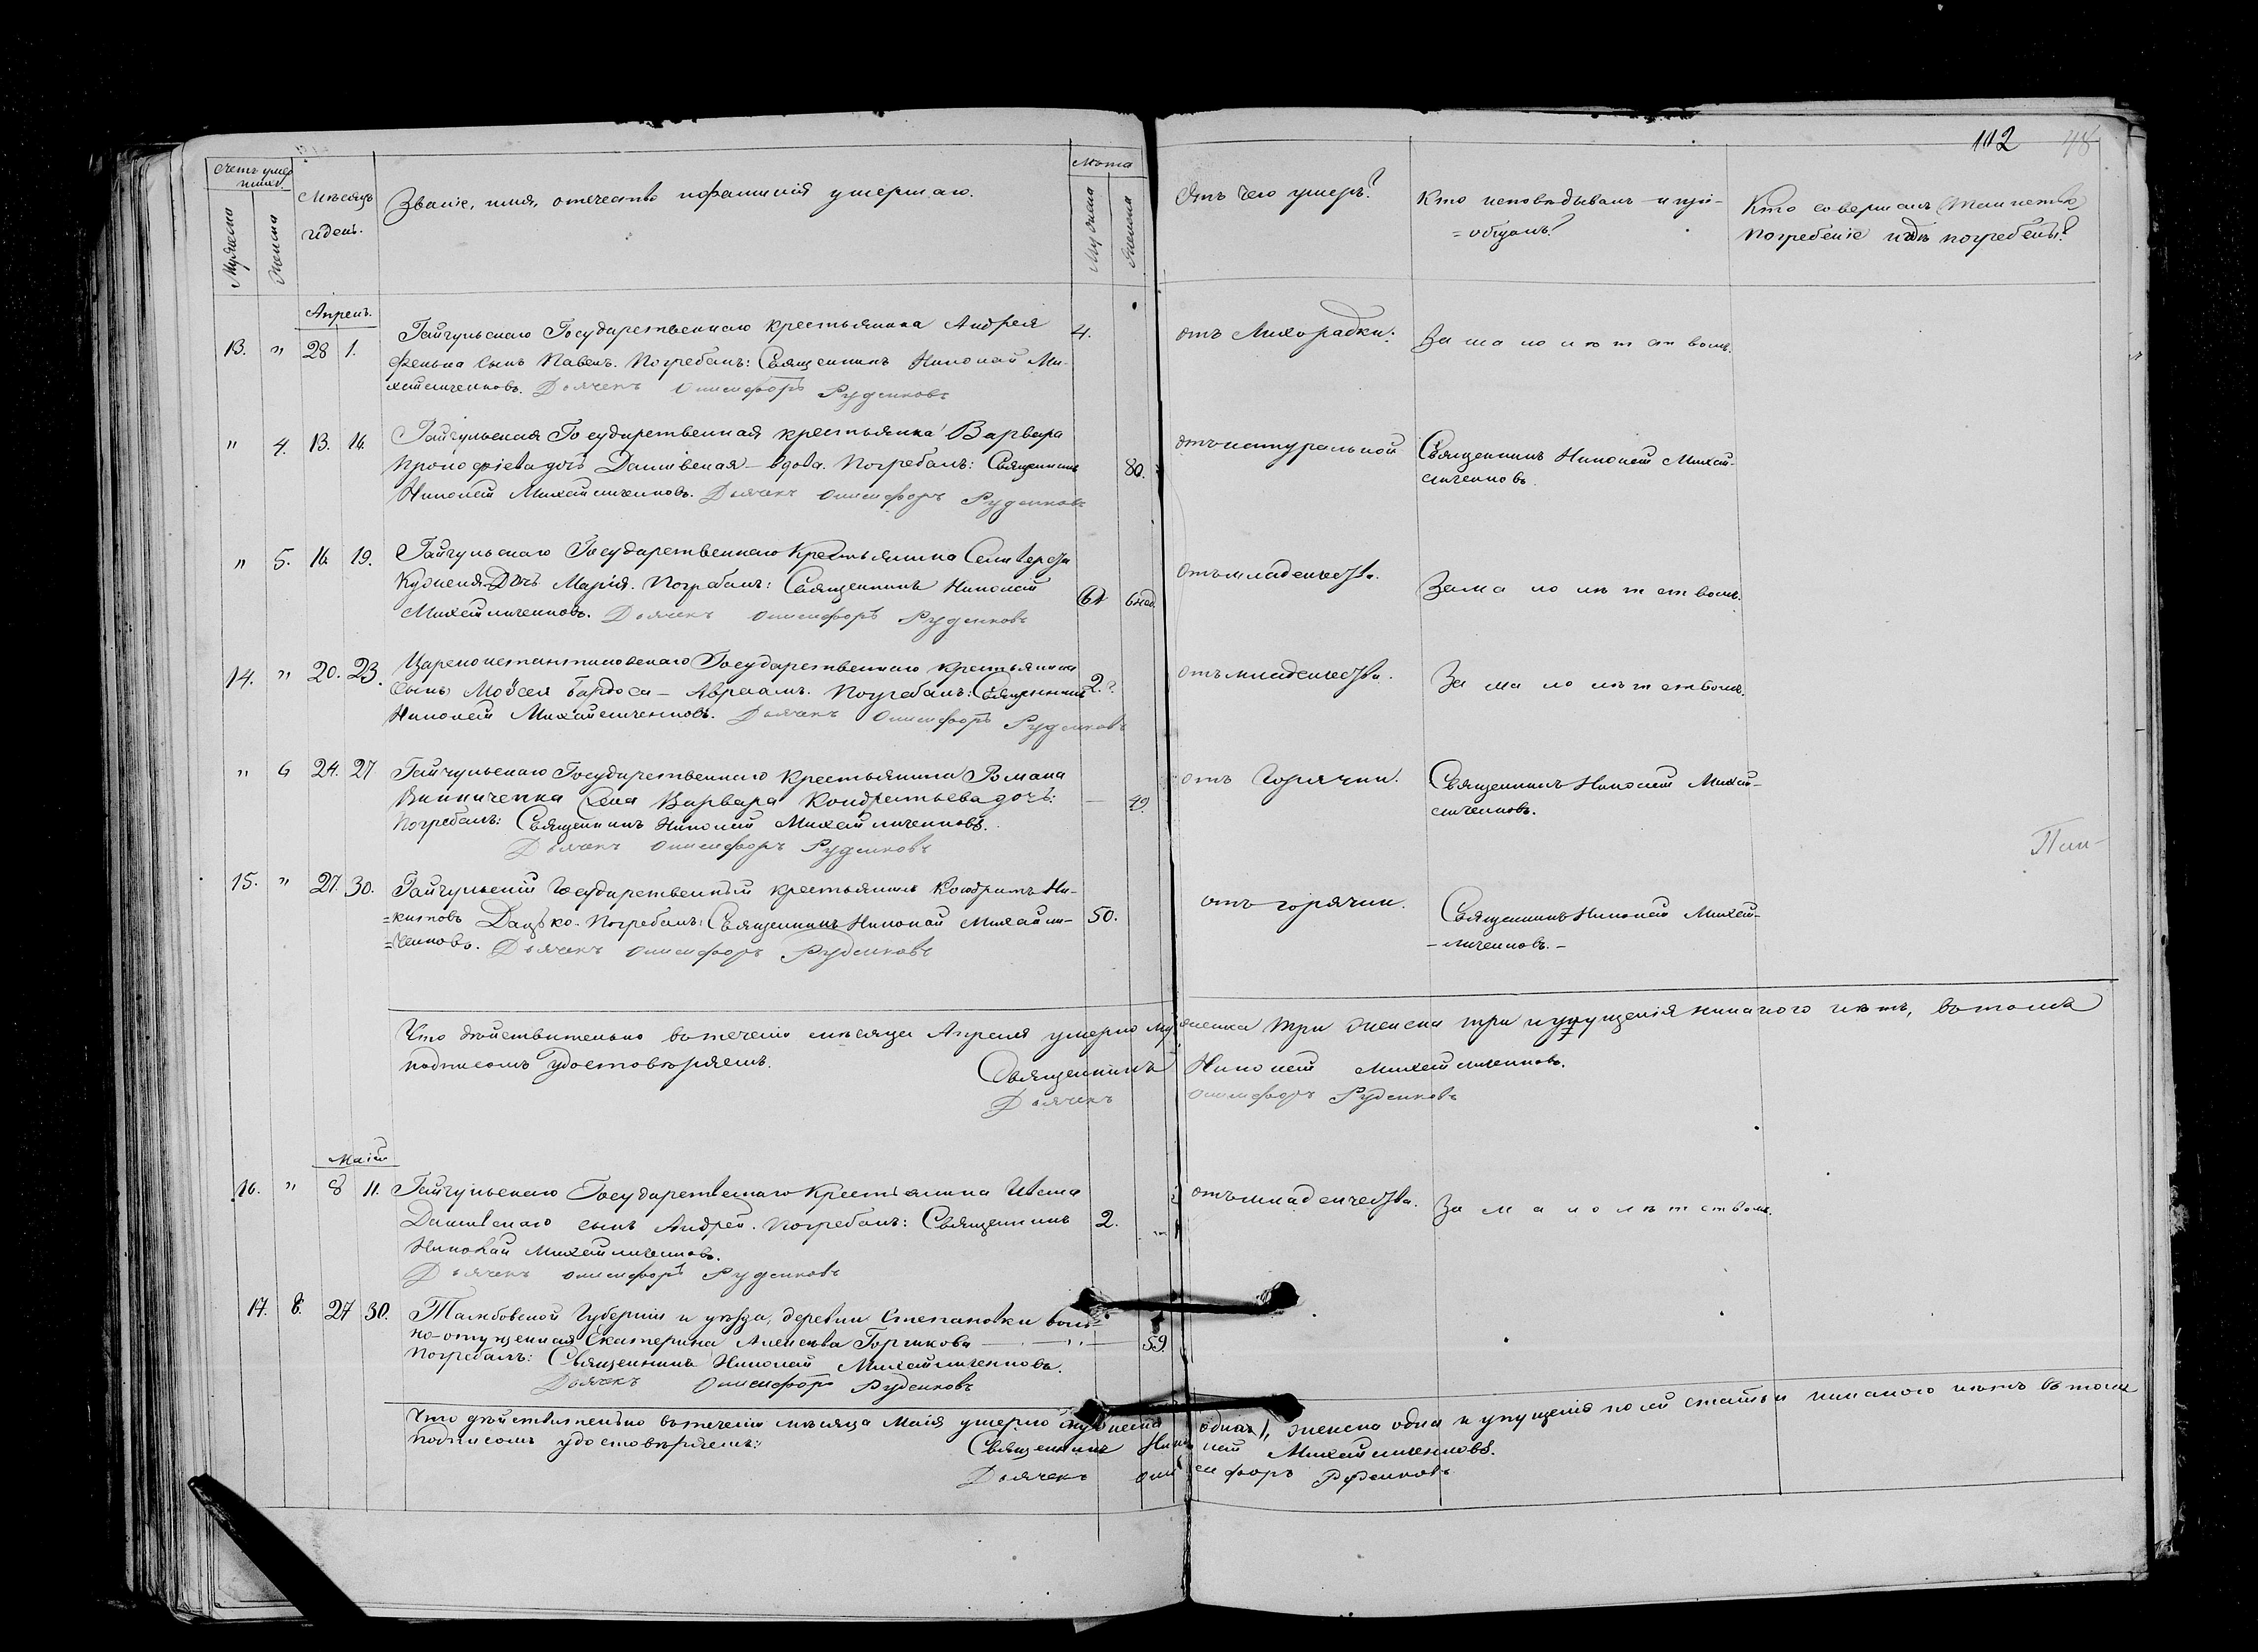 112 48
Счетъ умер
шихъ.
Мужеска
Женска
Мѣсяцъ
и день.
Званіе, имя, отечество и фамилія умершаго.
Лѣта
Мужеска
Женска
Отъ чего умеръ?
Кто исповѣдывалъ и прі-
=общалъ?
Кто совершалъ Таинство
погребеніе и гдѣ погребены?
Апрель.
13. " 28 1. Гайчульскаго Государственнаго крестьянина Андрея 4. отъ Лихорадки. За малолѣтствомъ.
сынъ Павелъ. Погребалъ: Священникъ Николай Ми-
хайличенковъ. Дьячекъ Онисифоръ Руденковъ
" 4. 13. 16. Гайчульская Государственная крестьянка Варвара отъ натуральной Священникъ Николай Михай-
дочь Данивская – вдова. Погребалъ: Священникъ 80. личенковъ.
Николай Михайличенковъ. Дьячекъ Онисифоръ Руденковъ
" 5. 16. 19. Гайчульскаго Государственнаго Крестьянина Селиверста отъ младенчества. За малолѣтствомъ.
Дочь Марія. Погребалъ: Священникъ Николай
Михайличенковъ. Дьячекъ Онисифоръ Руденковъ 6 нед.
14. " 20. 23. Цареконстантиновскаго Государственнаго крестьянина отъ младенчества. За малолѣтствомъ.
сынъ Мойсея Бардоса – Авраамъ. Погребалъ: Священникъ 2.
Николай Михайличенковъ. Дьячекъ Онисифоръ Руденковъ
" 6 24. 27 Гайчульскаго Государственнаго крестьянина Романа отъ горячки. Священникъ Николай Михай-
Винниченка жена Варвара Кондратьева дочь: — 49. личенковъ.
Погребалъ: Священникъ Николай Михайличенковъ.
Дьячекъ Онисифоръ Руденковъ
15. " 27. 30. Гайчульскій Государственный крестьянинъ Кондратъ Ни- отъ горячки. Священникъ Николай Михай-
=китовъ Дацько. Погребалъ: Священникъ Николай Михайли- 50. –личенковъ.–
=ченковъ. Дьячекъ Онисифоръ Руденковъ
Что дѣйствительно въ теченіи мѣсяца Апреля умерло мужеска три женска три и упущенія никакого нѣтъ, въ томъ
подписомъ удостовѣряемъ.
Священникъ Николай Михайличенковъ.
Дьячекъ Онисифоръ Руденковъ
Маій
16. " 8 11. Гайчульскаго Государственаго Крестьянина Ивана отъ младенчества. За малолѣтствомъ.
Данивскаго сынъ Андрей. Погребалъ: Священникъ 2.
Николай Михайличенковъ.
Дьячекъ Онисифоръ Руденковъ
17. 27 30. Тамбовской Губерніи и уѣзда, деревни Степановки воль-
но-отпущенная Екатерина Алексѣева Горчкова 59.
Погребалъ: Священникъ Николай Михайличенковъ.
Дьячекъ Онисифоръ Руденковъ
Что дѣйствительно въ теченіи мѣсяца Маія умерло мужеска одинъ, женска одна и упущенія по сей статьи никакого нѣтъ въ томъ
подписомъ удостовѣряемъ:
Священникъ Николай Михайличенковъ.
Дьячекъ Онисифоръ Руденковъ